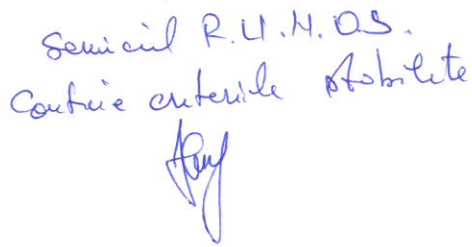 Serviciul R.U.M.O.S.
Contine criteriile stabilite